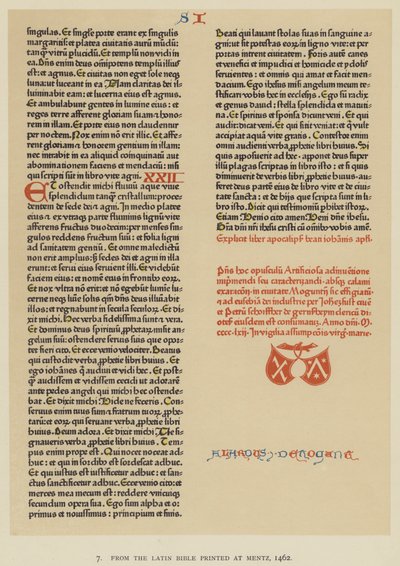 S I
singulas. Et singule porte erant ex singulis
margaritis: et platea ciuitatis aurū mūdū:
tanq̄ vitrū plucidū. Et templū non vidi in
ea. Dn̄s enim deus om̄ipotens templū illius
est: et agnus. Et ciuitas non eget sole neqꝫ
luna: ut luceant in ea. Nam claritas dei il-
luminabit eam: et lucerna eius est agnus.
Et ambulabunt gentes in lumine eius: et
reges terre afferent gloriam suam ⁊ hono-
rem in illam. Et porte eius non claudentur
per noctem. Nox enim nō erit illic. Et affe-
rent gloriam ⁊ honorem gentium in illam:
nec intrabit in ea aliquid coinquinatū aut
abominationem faciens et mendaciū: nisi
qui scripti sūt in libro vite agni. XXII
Et ostendit michi fluuiū aque viue
splendidum tanq̄ cristallum: proce-
dentem de sede dei ⁊ agni. In medio platee
eius ⁊ ex vtraqꝫ parte fluminis lignū vite
afferens fructus duodecim: per menses sin-
gulos reddens fructum suū: et folia ligni
ad sanitatem gentiū. Et omne maledictū
non erit amplius: s; sedes dei et agni in illa
erunt: et serui eius seruient illi. Et videbūt
faciem eius: et nomē eius in frontibꝫ eoꝝ.
Et nox vltra nō erit: et nō egebūt lumīe lu-
cerne neqꝫ lumīe solis: qm̄ dn̄s deus illūabit
illos: et regnabunt in secula seculoꝝ. Et di-
xit michi. Hec verba fidelissima sunt ⁊ vera.
Et dominus deus spirituū ꝓphetaꝝ misit an-
gelum suū: ostendere seruis suis que opor-
tet fieri cito. Et ecce venio velociter. Beatus
qui custodit verba ꝓphetie libri huius. Et
ego iohānes q̄ audiui et vidi hec. Et post-
q̄ audissem et vidissem cecidi ut adorarē
ante pedes angeli qui michi hec ostende-
bat. Et dixit michi. Vide ne feceris. Con-
seruus enim tuus sum ⁊ fratrum tuoꝝ ꝓphe-
taꝝ: et eoꝝ qui seruant verba ꝓphetie libri
huius. Deum adora. Et dixit michi. Ne si-
gnaueris verba ꝓphetie libri huius. Tem-
pus enim prope est. Qui nocet noceat ad-
huc: et qui in sordibꝫ est sordescat adhuc.
Et qui iustus est iustificetur adhuc: et san-
ctus sanctificetur adhuc. Ecce venio cito: et
merces mea mecum est: reddere vnicuiqꝫ
secundum opera sua. Ego sum alpha et o:
primus et nouissimus: principium et finis.
Beati qui lauant stolas suas in sanguine a-
gni: ut sit potestas eoꝝ in ligno vite: et per
portas intrent ciuitatem. Foris autē canes
et venefici et impudici et homicide et ydolis
seruientes: et omnis qui amat et facit men-
dacium. Ego ihesus misi angelum meum te-
stificari vobis hec in ecclesijs. Ego sū radix
et genus dauid: stella splendida et matuti-
na. Et spiritus et sponsa dicunt veni. Et qui
audit: dicat veni. Et qui sitit veniat: et q̄ vult
accipiat aquā vite gratis. Contestor enim
omni audienti verba ꝓphetie libri huius. Si
quis apposuerit ad hec: apponet deus super
illū plagas scriptas in libro isto: et si quis
diminuerit de verbis libri ꝓphetie huius: au-
feret deus partē eius de libro vite et de ciui-
tate sancta: et de hijs que scripta sunt in li-
bro isto. Dicit qui testimoniū phibet istoꝝ.
Etiam. Venio cito amen. Veni dn̄e ihesu.
Gr̄a dn̄i nr̄i ihesu cristi cū om̄ibꝫ vobis amē.
Explicit liber apocalipſ beati iohānis apl̄i.
Pn̄s hoc opusculū Artificiosa adinuētione
imprimendi seu caracterizandi absqꝫ calami
exaracōn: in ciuitate Moguntn̄ sic effigiatū.
⁊ ad eusebiā dei industrie per Johez̄ fust ciuē
et Petrū schoiffher de gernsheym clericū di-
otes̄ eiusdem est consumatū. Anno dn̄i M.
cccc.lxij. In vigilia assumpcōis virg̓. marie.
7. FROM THE LATIN BIBLE PRINTED AT MENTZ, 1462.